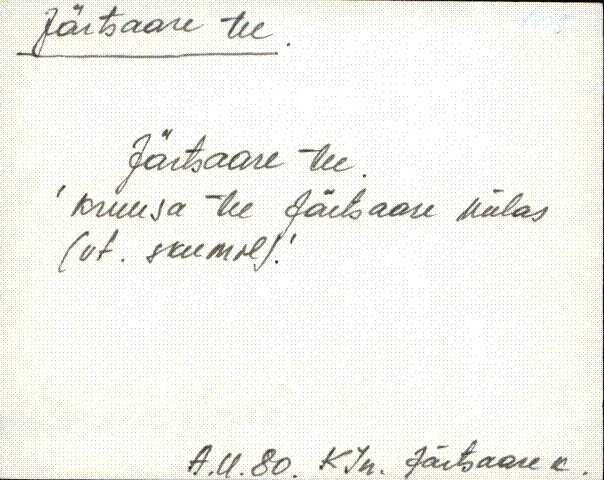 Järtsaare tee.
Järtsaare tee.
'kruusa tee Järtsaare külas
(vt. skeemil).'
A.U.80. KJn. Järtsaare k.